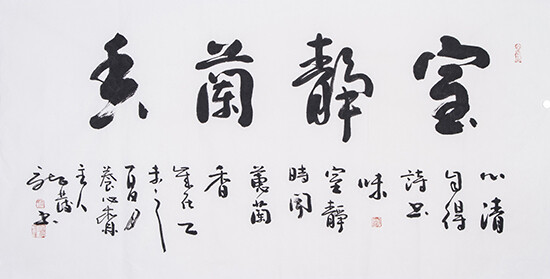 室靜蘭香
心清
自得
詩書
味
室靜
時聞
蕙蘭
香
歲在丁
未之
月
養心齋
主人
書